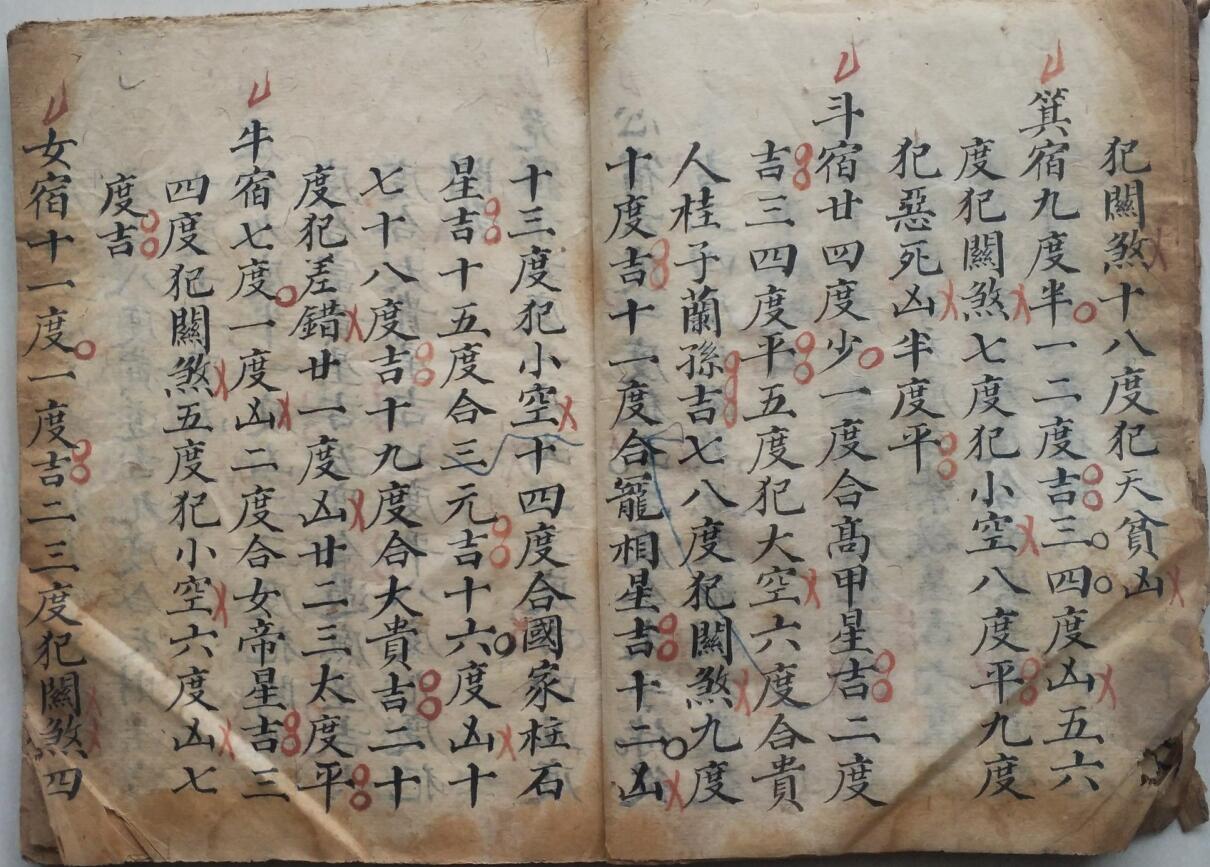 犯關煞十八度犯天貧凶
箕宿九度半一二度吉三四度凶五六
度犯關煞七度犯小空八度平九度
犯惡死凶半度平
斗宿廿四度少一度合高甲星吉二度
吉三四度平五度犯大空六度合貴
人桂子蘭孫吉七八度犯關煞九度
十度吉十一度合寵相星吉十二凶
十三度犯小空十四度合國家柱石
星吉十五度合三元吉十六度凶十
七十八度吉十九度合大貴吉二十
度犯差錯廿一度凶廿二三太度平
牛宿七度一度凶二度合女帝星吉三
四度犯關煞五度犯小空六度凶七
度吉
女宿十一度一度吉二三度犯關煞四